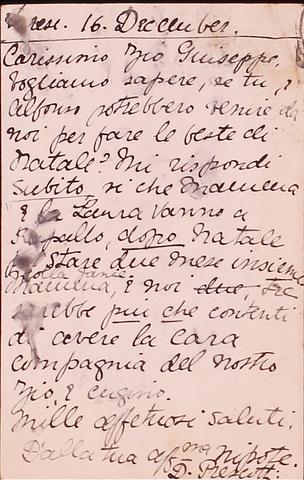 16. December.
Carissimo Zio Giuseppe,
Vogliamo sapere, se tu, e
Alfonso potrebbero venire da
noi per fare le feste di
Natale? Mi rispondi
subito, si che Mamma
e la Laura vanno a
Rapallo, dopo Natale
Stare due mese insieme
Mamma, e noi due, tre
sarebbe piu che contenti
di avere la cara
compagnia del nostro
Zio, e cugino.
Mille affetuosi saluti,
Dalla tua aff ma nipote.
D. Prescott.